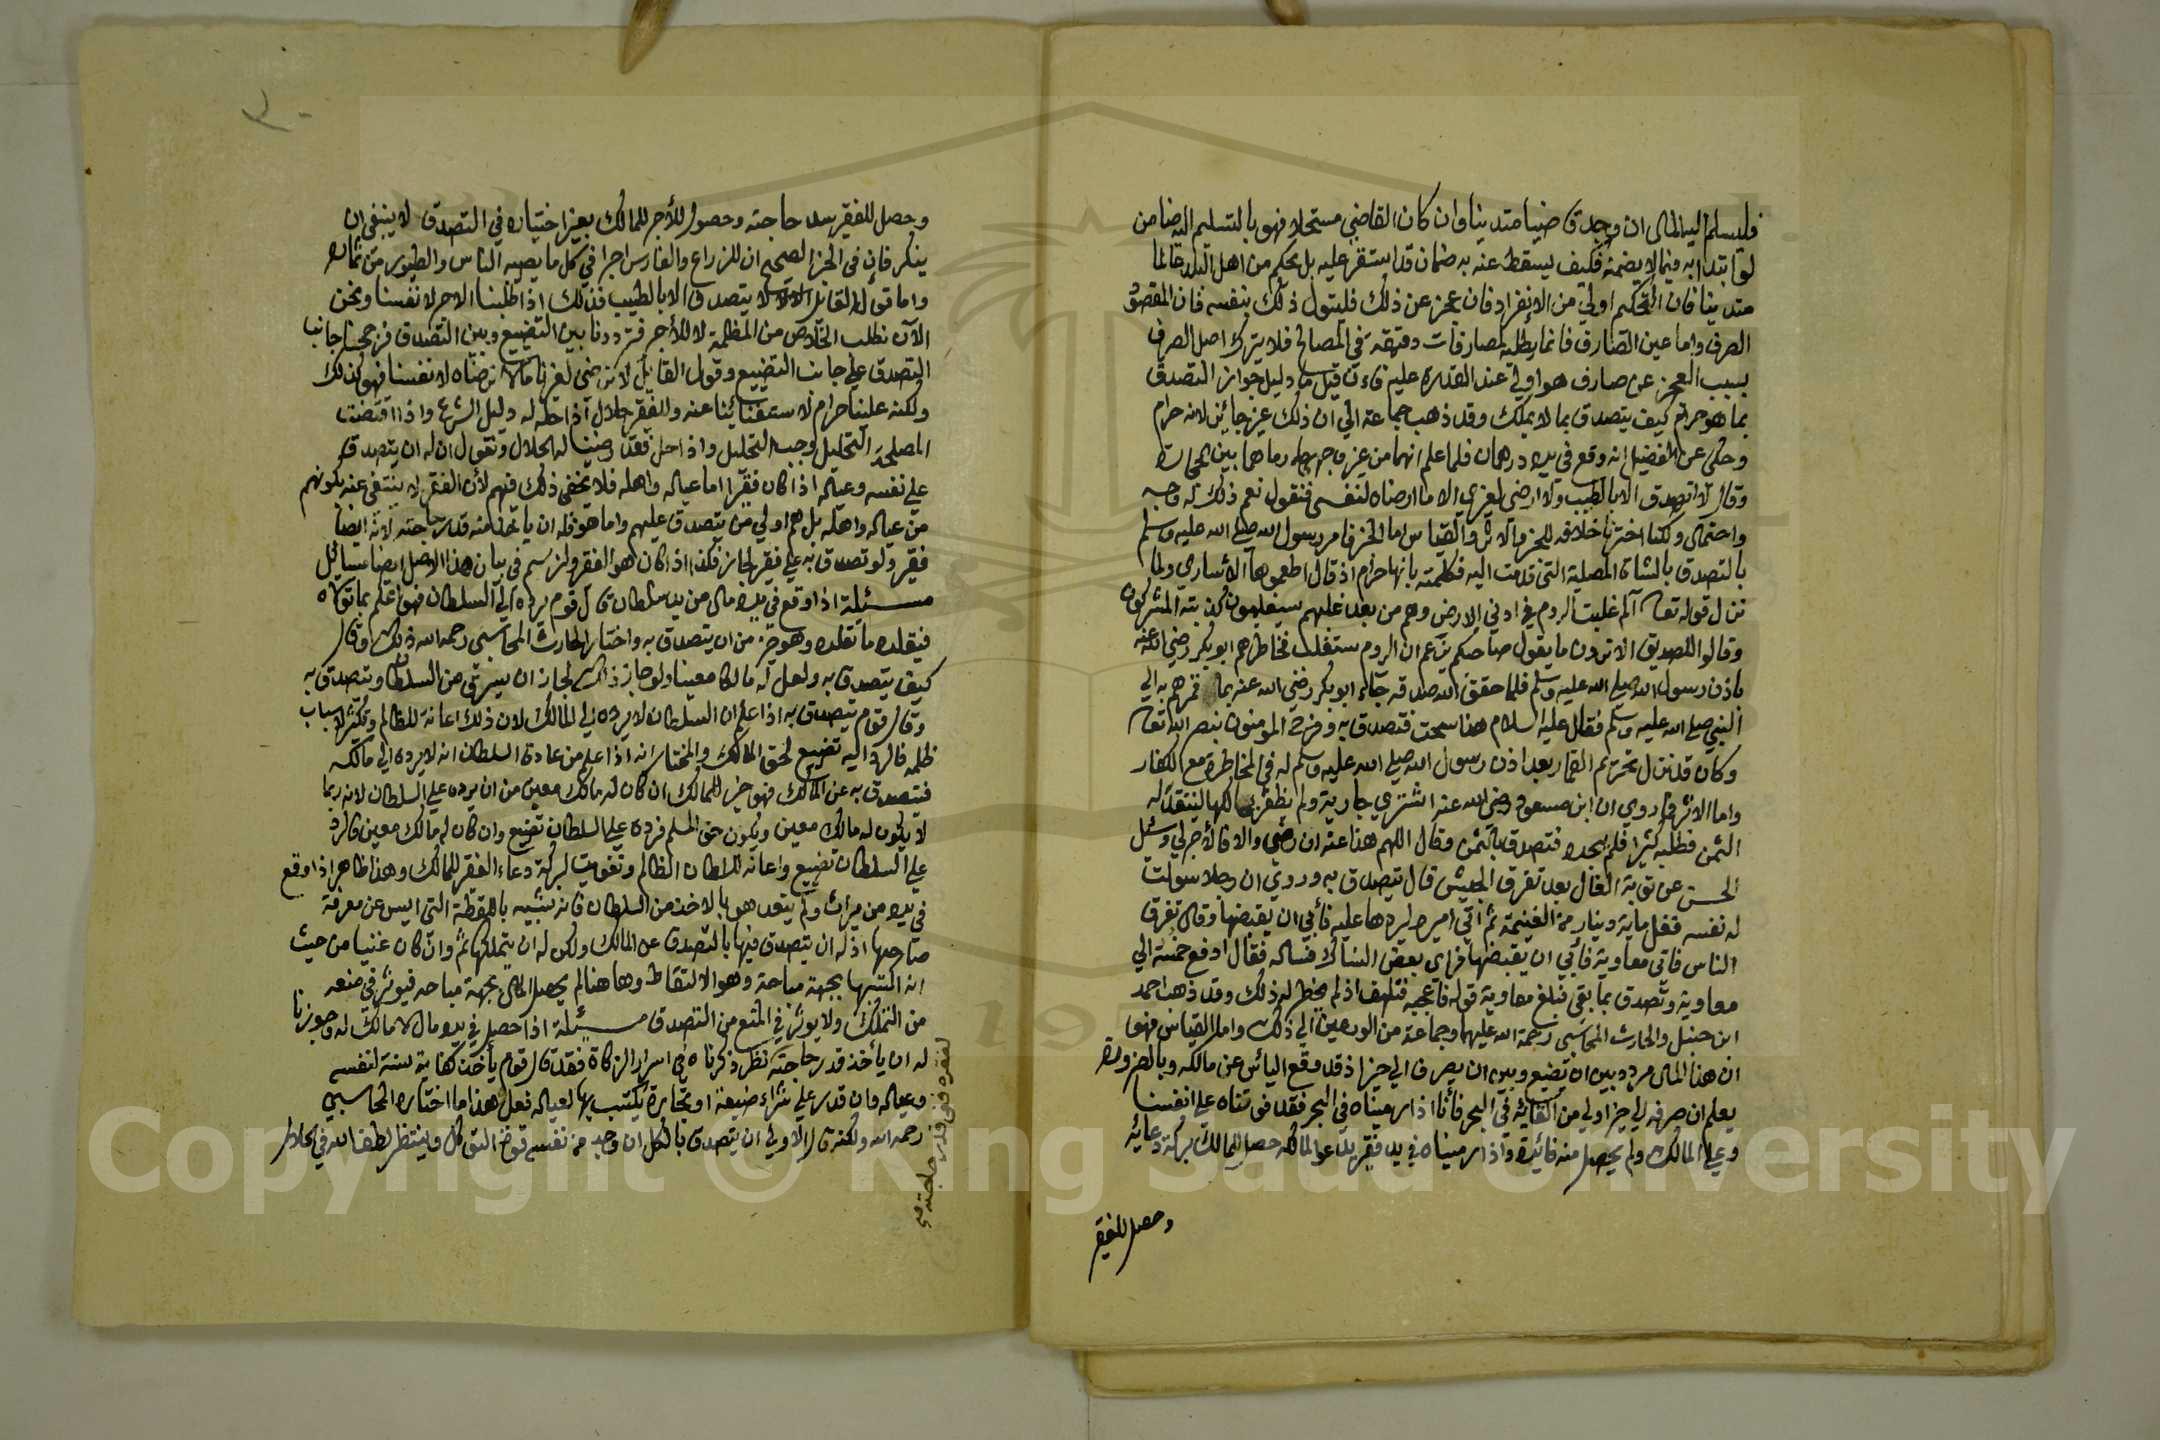 فليسلم اليه المال ان وجد قاضيا متدينا وان كان القاضي مستحلا فهو بالتسليم اليه ضامن
لو ابتدا به فيما لا يضمنه فكيف يسقط عنه به ضمان قد استقر عليه بل يحكم من اهل البلد عالما
متدينا فان التحكيم اولي من الانفراد فان عجز عن ذلك فليتول ذلك بنفسه فان المقصود
الصرف واما عين الصارف فانما يطلبه لمصارفات دقيقة في المصالح فلا يترك اصل الصرف
بسبب العجز عن صارف هو اولي عند القدرة عليه فان قيل ما دليل جواز التصدق
بما هو حرام كيف يتصدق بما لا يملك وقد ذهب جماعة الي ان ذلك غير جائز لانه حرام
وحكي عن الفضيل انه وقع في يده درهمان فلما علم انهما من غير وجههما رماهما بين الحجارة
وقال لا اتصدق الا بالطيب ولا ارضي لغيري الا ما ارضاه لنفسي فنقول نعم ذلك له وجه
واحتمال ولكنا اخترنا خلافه للخبر والاثر والقياس اما الخبر فامر رسول الله صلي الله عليه وسلم
بالتصدق بالشاة المصلية التي قدمت اليه فكلمته بانها حرام اذ قال اطعموها الاساري ولما
نزل قوله تعا الم غلبت الروم في ادني الارض وهم من بعد غلبهم سيغلبون كذبته المشركون
وقالوا للصديق الا ترون ما يقول صاحبكم يزعم ان الروم ستغلب فخاطرهم ابو بكر رضي الله عنه
باذن رسول الله صلي الله عليه وسلم فلما حقق الله صدقه جاء ابو بكر رضي الله عنه بما قمرهم به الي
النبي صلي الله عليه وسلم فقال عليه السلام هذا سحت فتصدق به وفرح المومنون بنصر الله تعا
وكان قد نزل تحريم القمار بعد اذن رسول الله صلي الله عليه وسلم له في المخاطرة مع الكفار
واما الاثر فما روي ان ابن مسعود رضي الله عنه اشتري جارية ولم يظفر بمالكها لينقد له
الثمن فطلبه كثيرا فلم يجده فتصدق بالثمن وقال اللهم هذا عنه ان رضي والا فالاجر لي وسئل
الحسن عن توبة الغال بعد تفرق الجيش قال يتصدق به وروي ان رجلا سولت
له نفسه فغل ماية دينار من الغنيمة ثم اتي اميره ليردها عليه فابي ان يقبضها وقال تفرق
الناس فاتي معاوية فابي ان يقبضها فراي بعض النساك فساله فقال ادفع خمسه الي
معاوية وتصدق بما بقي فبلغ معاوية قوله فاعجبه فتلهف اذ لم يخطر له ذلك وقد ذهب احمد
ابن حنبل والحارث المحاسبي رحمة الله عليهما وجماعة من الورعين الي ذلك واما القياس فهو
ان هذا المال مردد بين ان يضيع وبين ان يصرف الي خير اذ قد وقع الياس عن مالكه وبالضرورة
يعلم ان صرفه الي خير اولي من القايه في البحر فانا اذا رميناه في البحر فقد فوتناه علي انفسنا
وعلي المالك ولم يحصل منه فائدة واذا رميناه في يد فقير يدعو لمالكه حصل للمالك بركة دعائه
وحصل للفقير
وحصل للفقير سد حاجته وحصول الاجر للمالك بغير اختياره في التصدق لا ينبغي ان
ينكر فان في الخبر الصحيح ان للزراع والغارس اجرا في كل ما يصيبه الناس والطيور من ثماره
واما قول القائل لا يتصدق الا بالطيب فذلك اذا طلبنا الاجر لانفسنا ونحن
الان نطلب الخلاص من المظلمة لا الاجر فترددنا بين التضييع وبين التصدق فرجحنا جانب
التصدق علي جانب التضييع وقول القائل لا نرضي لغيرنا ما لا نرضاه لانفسنا فهو كذلك
ولكنه علينا حرام لاستغنائنا عنه وللفقير حلال اذا حله له دليل الشرع واذا اقتضت
المصلحة التحليل وجب التحليل واذا حل فقد رضينا له الحلال ونقول ان له ان يتصدق
علي نفسه وعياله اذا كان فقيرا اما عياله واهله فلا يخفي ذلك فيهم لان الفقر لا ينتفي عنه بكونهم
من عياله واهله بل هم اولي من يتصدق عليهم واما هو فله ان ياخذ منه قدر حاجته لانه ايضا
فقير ولو تصدق به علي فقير لجاز فكذا اذا كان هو الفقير ولنرسم في بيان هذا الاصل ايضا مسائل
مسئلة اذا وقع في يده مال من يد سلطان قال قوم يرده الي السلطان فهو اعلم بما تولاه
فيقلده ما تقلده وهو خير من ان يتصدق به واختار الحارث المحاسبي رحمه الله ذلك وقال
كيف يتصدق به ولعل له مالكا معينا ولو جاز ذلك لجاز ان يسرق من السلطان ويتصدق به
وقال قوم يتصدق به اذا علم ان السلطان لا يرده الي المالك لان ذلك اعانة للظالم وتكثير لاسباب
ظلمه فالرد اليه تضييع لحق المالك والمختار انه اذا علم من عادة السلطان انه لا يرده الي مالكه
فيتصدق به عن المالك فهو خير للمالك ان كان له مالك معين من ان يرده علي السلطان لانه ربما
لا يكون له مالك معين ويكون حق المسلم فرده علي السلطان تضييع وان كان له مالك معين فالرد
علي السلطان تضييع واعانة للسلطان الظالم وتفويت لبركة دعاء الفقير للمالك وهذا ظاهر اذا وقع
في يده من ميراث ولم يتعد هو بالاخذ من السلطان فانه شبيه باللقطة التي ايس عن معرفة
صاحبها اذ له ان يتصدق فيها بالتصدق عن المالك ولكن له ان يتملكها ثم وان كان غنيا من حيث
انه اكتسبها بجهة مباحة وهو الالتقاط وهاهنا لم يحصل المال بجهة مباحه فيوثر في منعه
من التملك ولا يوثر في المنع من التصدق مسئلة اذا حصل في يده مال لا مالك له وجوزنا
له ان يأخذ قدر حاجته نظر ذكرناه في اسرار الزكاة فقد قال قوم يأخذ كفاية سنة لنفسه
وعياله وان قدر علي شراء ضيعة او تجارة يكتسب بها لعياله فعل هذا ما اختاره المحاسبي
رحمه الله ولكنه قال الاولي ان يتصدق بالكل ان وجد من نفسه قوة التوكل وينتظر لطف الله في الحلال
لفقره ففي قدر حاجته صح
٣٠
Copyright © King Saud University